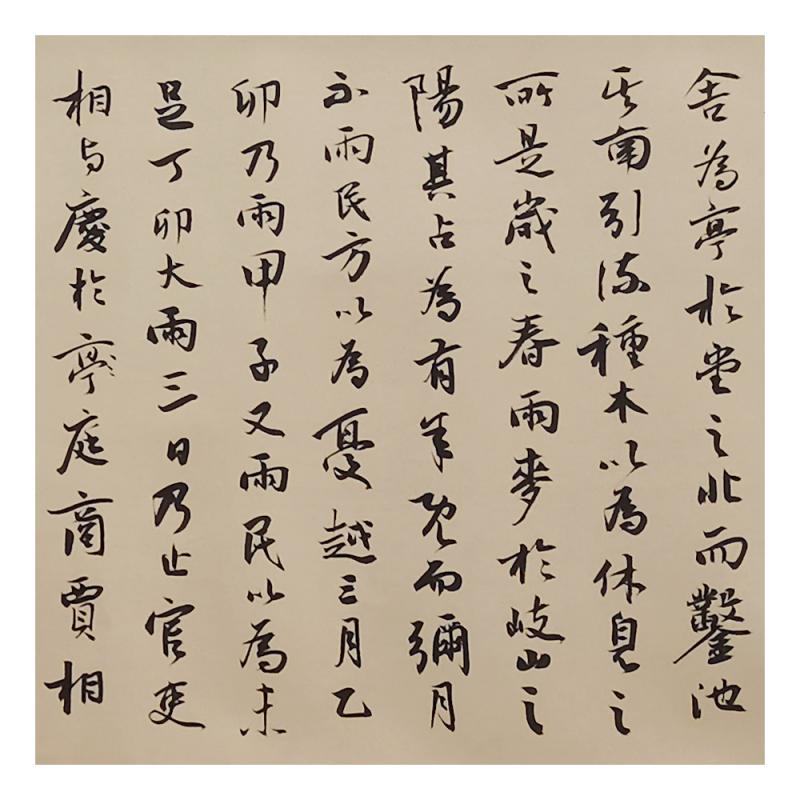 舍為亭於堂之北而鑿池
其南引流種木以為休息之
所是歲之春雨麥於岐山之
陽其占為有年既而彌月
不雨民方以為憂越三月乙
卯乃雨甲子又雨民以為未
足丁卯大雨三日乃止官吏
相与慶於亭庭商賈相